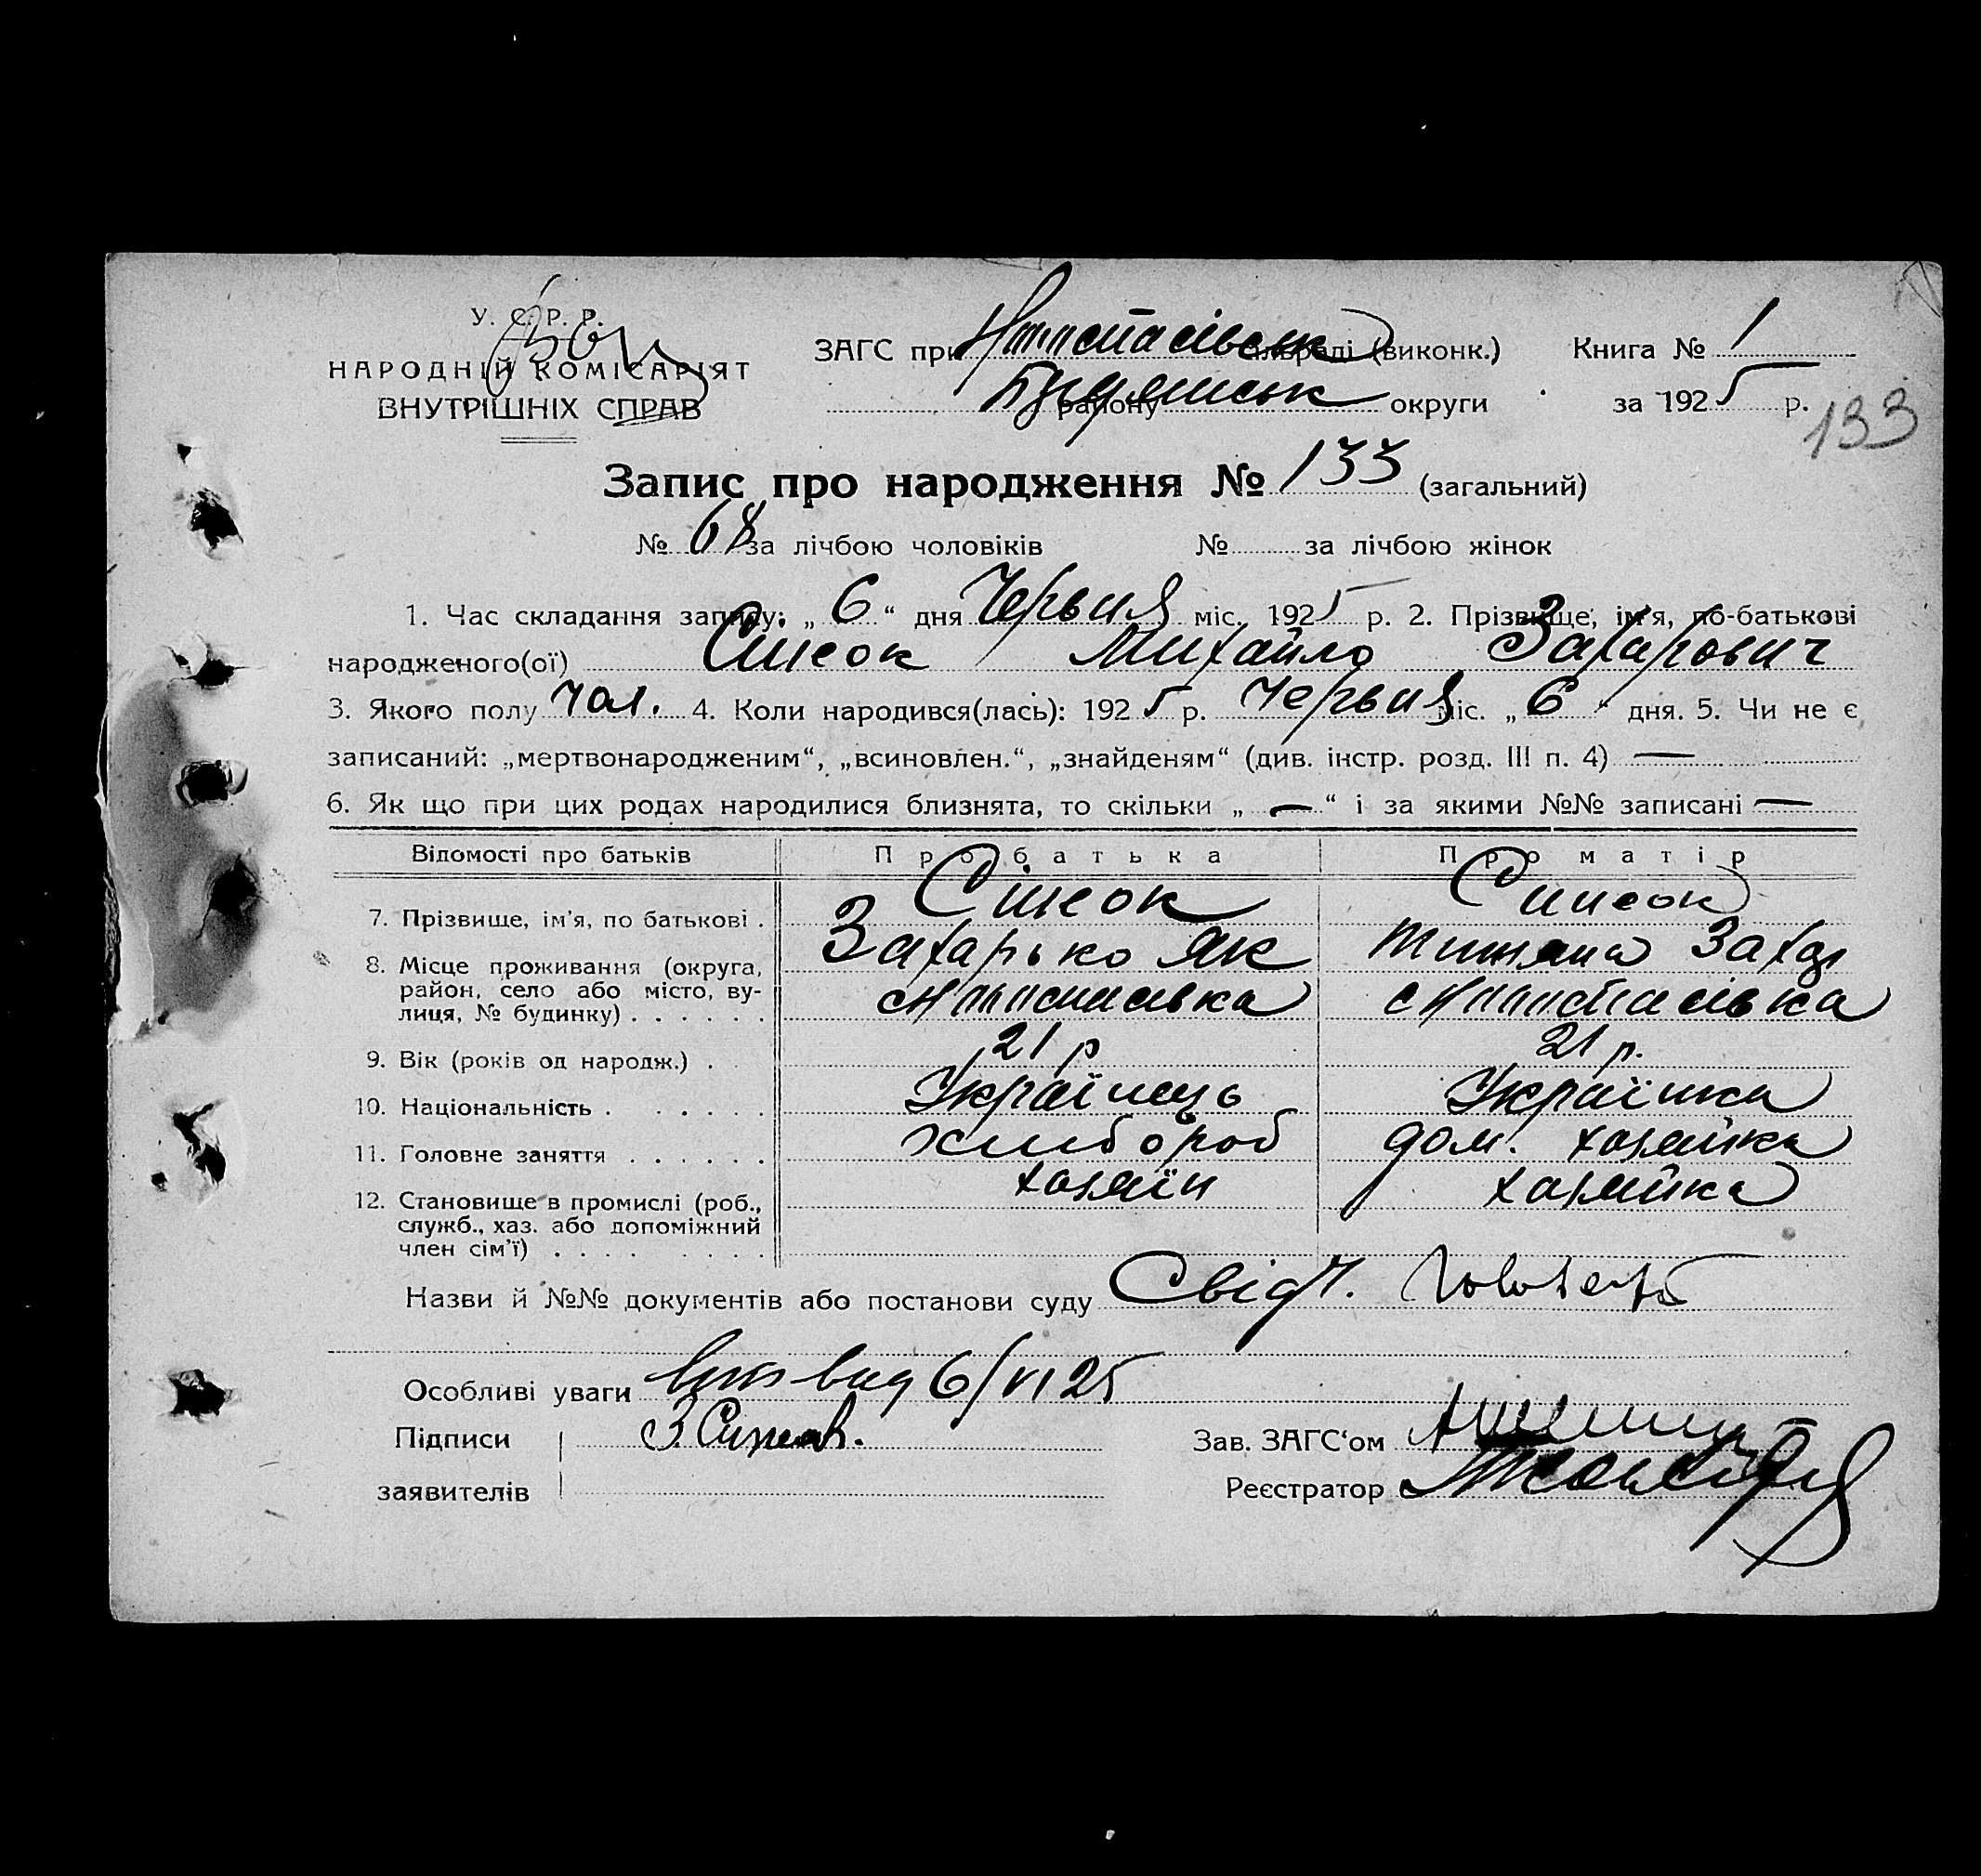 У. С. Р. Р.
НАРОДНІЙ КОМІСАРІЯТ
ВНУТРІШНІХ СПРАВ
ЗАГС при сільраді (виконк.)
району округи
Книга № 1
за 1925 р.
133
Запис про народження № 133 (загальний)
№ 68 за лічбою чоловіків № за лічбою жінок
1. Час складання запису: „6“ дня Червня міс. 1925 р. 2. Прізвище, ім'я, по-батькові
народженого(ої) Михайло Захарович
3. Якого полу чол. 4. Коли народився(лась): 1925 р. Червня міс. „6“ дня. 5. Чи не є
записаний: „мертвонародженим“, „всиновлен.“, „знайденям“ (див. інстр. розд. III п. 4) —
6. Як що при цих родах народилися близнята, то скільки „—“ і за якими №№ записані —
Відомості про батьків Про батька Про матір
7. Прізвище, ім'я, по батькові .
Захарько Як Захар
8. Місце проживання (округа,
район, село або місто, ву-
лиця, № будинку) . . . . . .
9. Вік (років од народж.) . 21 р 21 р.
10. Національність . . . . . . Українець Українка
11. Головне заняття . . . . . . хлибороб дом. хозяйка
12. Становище в промислі (роб., хозяїн хозяйка
служб., хаз. або допоміжний
член сім'ї) . . . . . . . .
Назви й №№ документів або постанови суду Свідч.
Особливі уваги 6/VI 25
Підписи
заявителів
Зав. ЗАГС'ом
Реєстратор